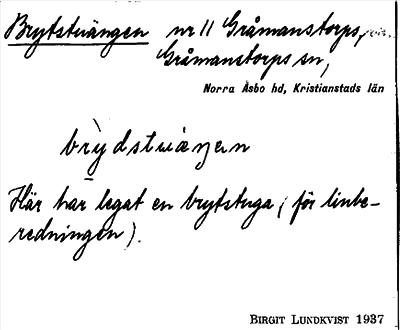 Brytstuängen nr 11 Gråmanstorps,
Gråmanstorps sn,
Norra Åsbo hd, Kristianstads län
brydstuäŋen
Här har legat en brytstuga (för linbe-
redningen).
BIRGIT LUNDKVIST 1937